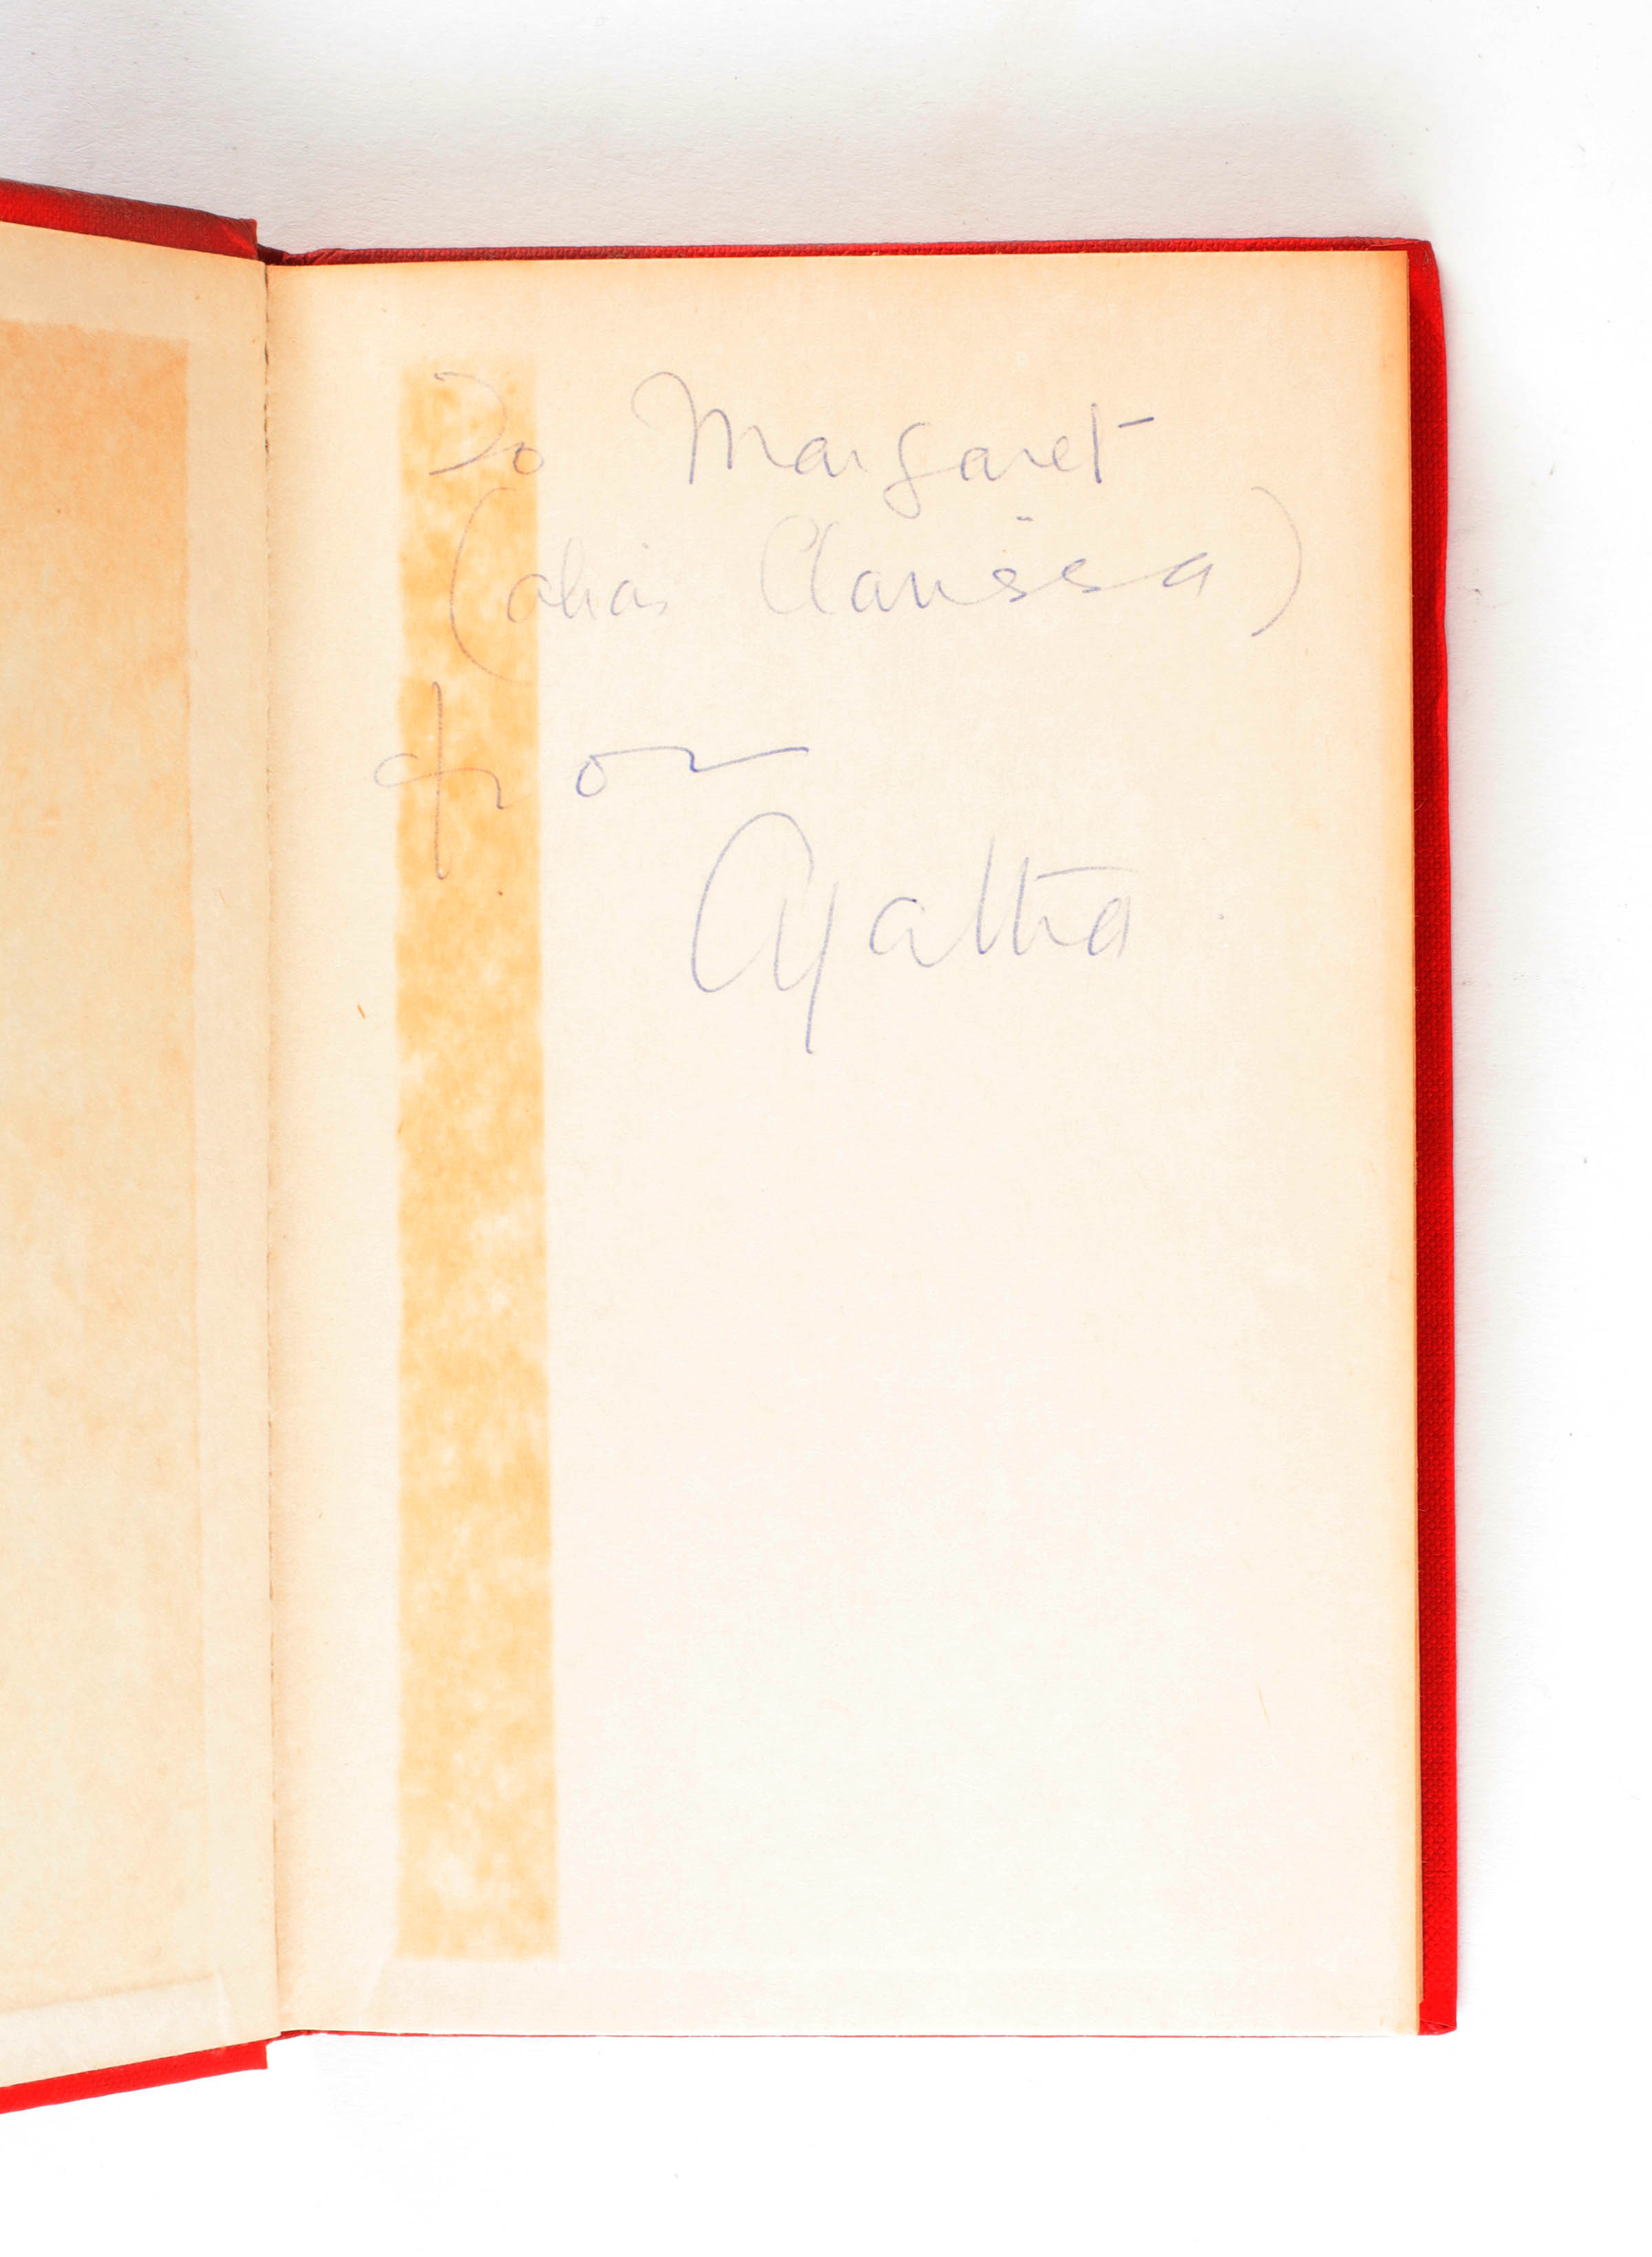 To Margaret
(alias Clarissa)
from
Agatha